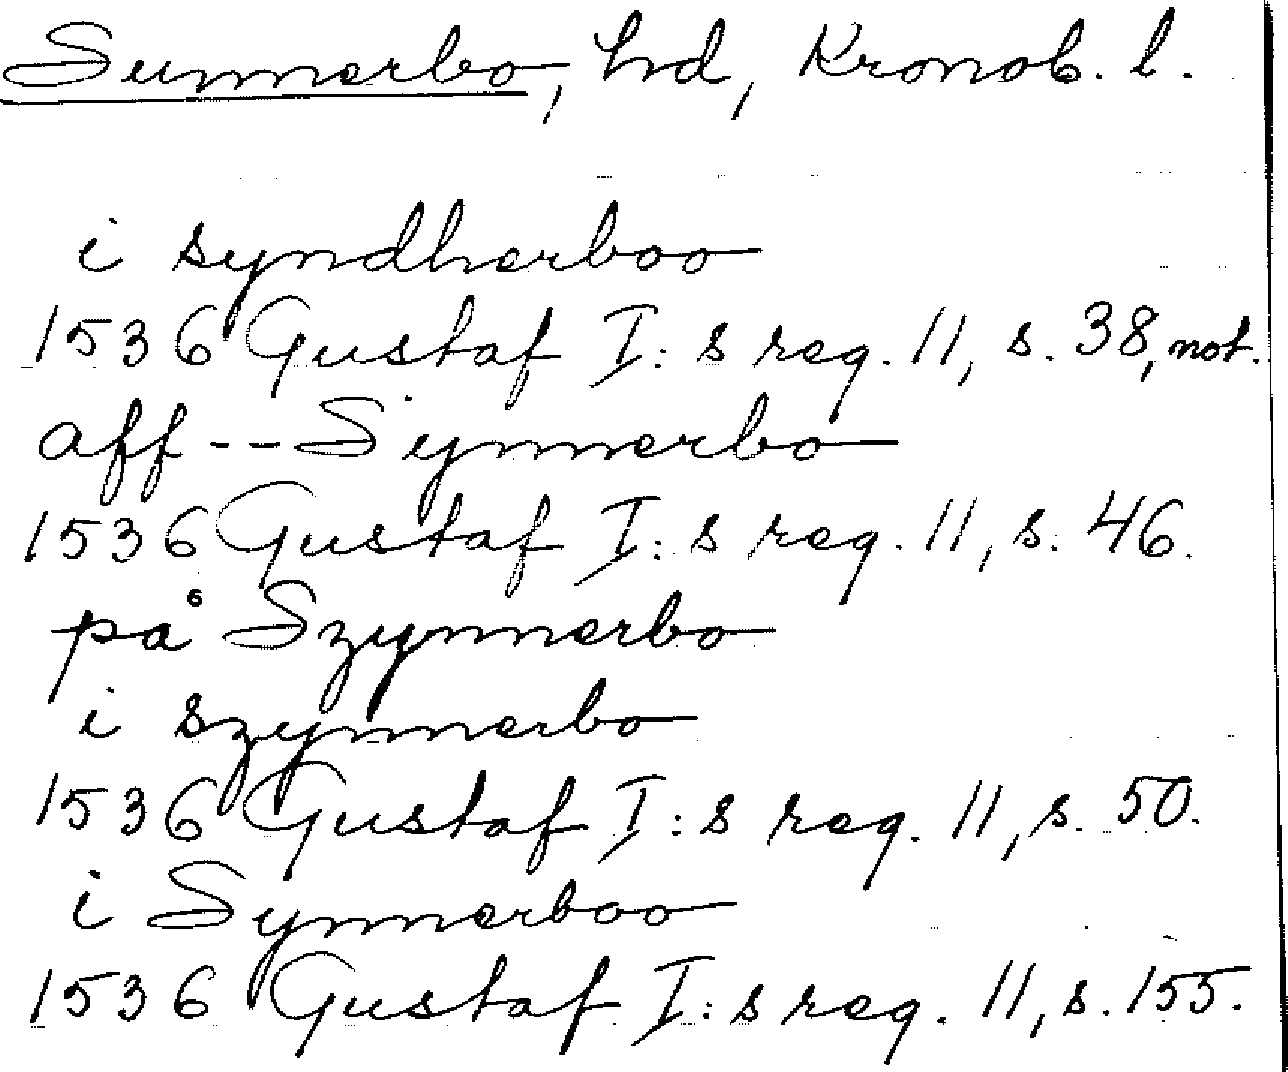 Sunnerbo, hd, Kronob. l.
i syndherboo
1536 Gustaf I:s reg. 11, s. 38, not.
aff -- Synnerbo
1536 Gustaf I:s reg. 11, s. 46.
på Szynnerbo
i szynnerbo
1536 Gustaf I:s reg. 11, s. 50.
i Synnerboo
1536 Gustaf I:s reg. 11, s. 155.